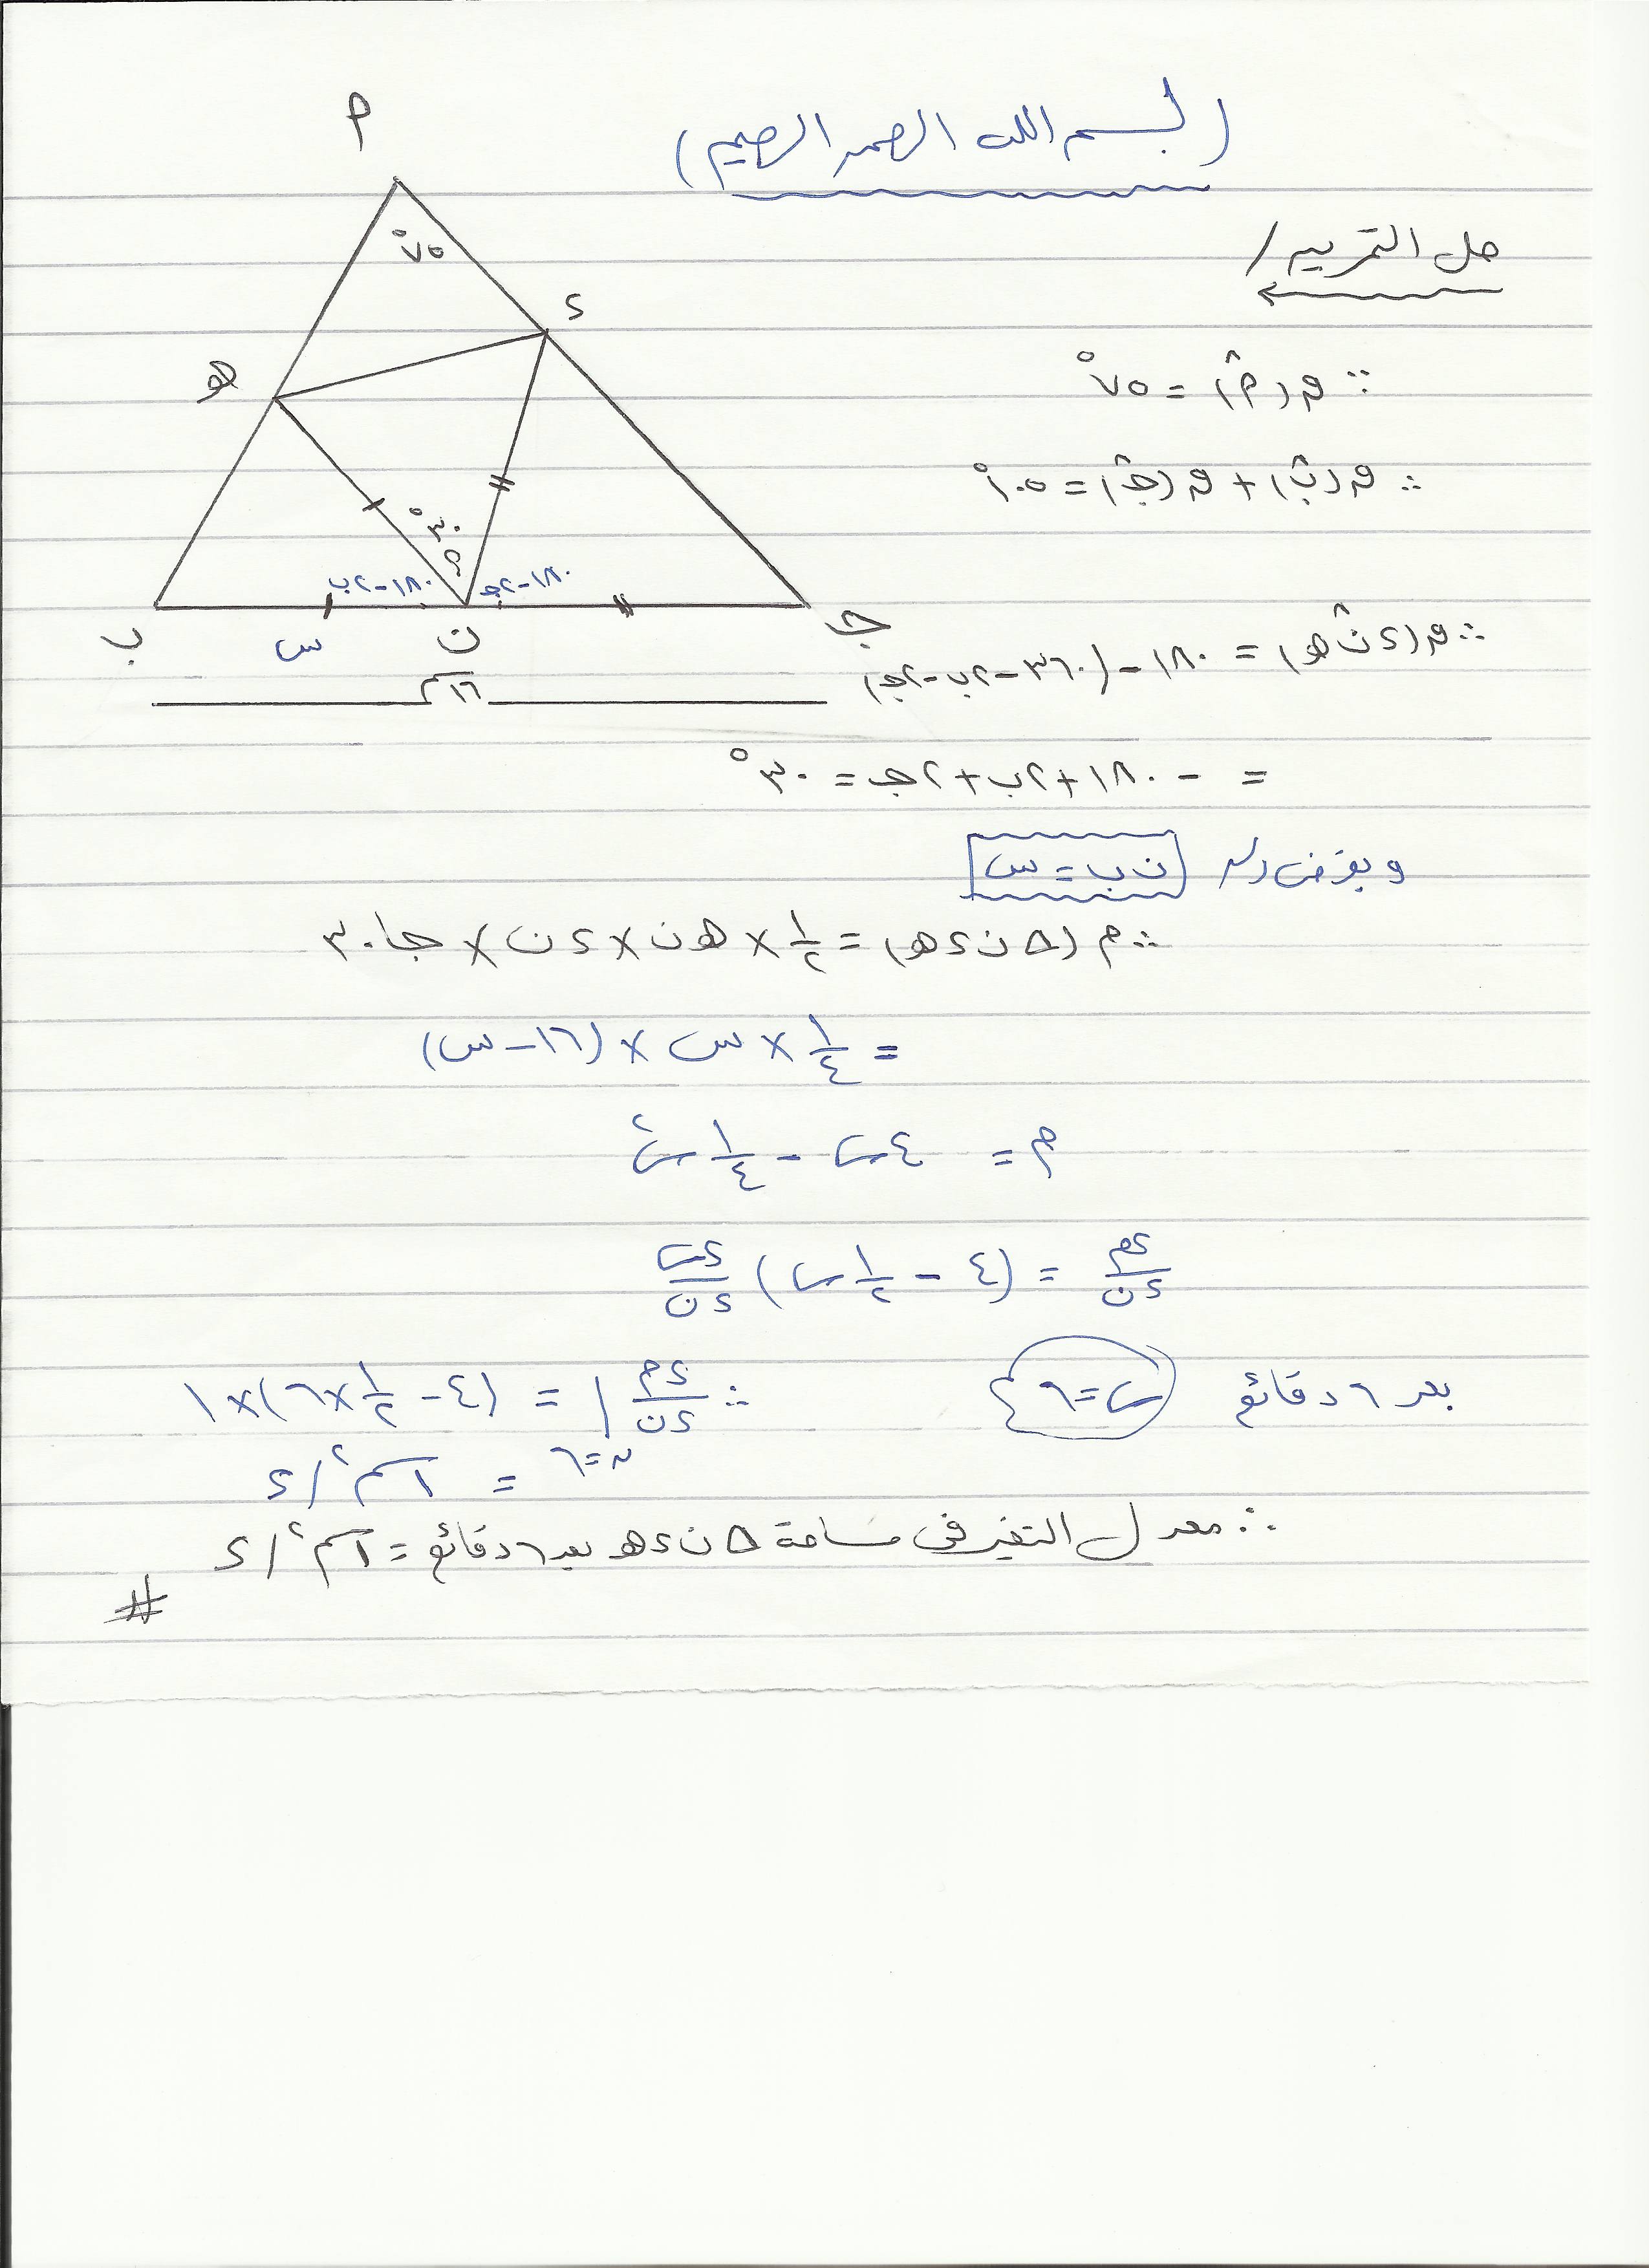 (بسم الله الرحمن الرحيم)
حل التمرين /
∵ ق(أ̂) = ٧٥°
∴ ق(ب̂) + ق(جـ̂) = ١٠٥°
∴ ق(د ن̂ هـ) = ١٨٠ - (٣٦٠ - ٢ب - ٢جـ)
= - ١٨٠ + ٢ب + ٢جـ = ٣٠°
وبفرض أن ن ب = س
∴ م (△ ن د هـ) = ١/٢ × هـ ن × د ن × جا ٣٠
= ١/٤ × س × (١٦ - س)
م = ٤س - ١/٤ س²
دم/دن = (٤ - ١/٢ س) دس/دن
بعد ٦ دقائق س = ٦
∴ دم/دن | ن=٦ = (٤ - ١/٢ × ٦) × ١
= ١سم²/د
∴ معدل التغير فى مساحة △ ن د هـ بعد ٦ دقائق = ١سم²/د
#
أ
٧٥°
د
هـ
٣٠°
١٨٠ - ٢ب
١٨٠ - ٢جـ
ب
س
ن
جـ
١٦سم